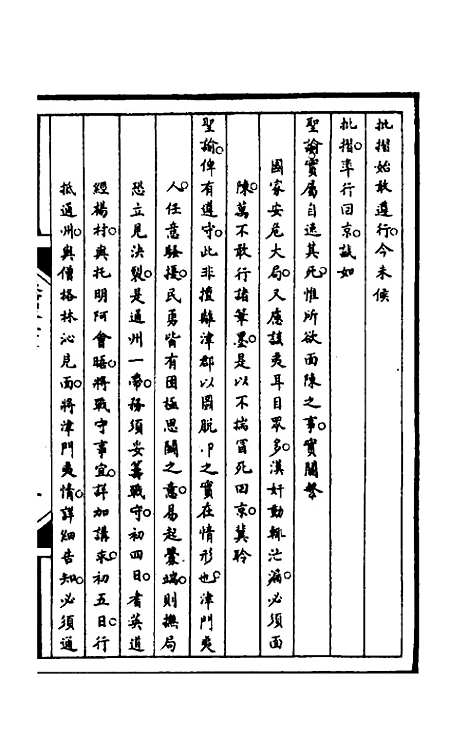 批摺始敢遵行今未候
批摺率行回京誠如
聖諭實屬自速其死惟所欲面陳之事實關繫
國家安危大局又慮該夷耳目眾多漢奸動輒洩漏必須面
陳萬不敢行諸筆墨是以不揣冒死回京冀聆
聖諭俾有遵守此非擅離津郡以圖脫卸之實在情形也津門夷
人任意騷擾民勇皆有困極思鬭之意易起釁端則撫局
恐立見決裂是通州一帶務須妥籌戰守初四日耆英道
經楊村與托明阿會晤將戰守事宜詳加講求初五日行
抵通州與僧格林沁見面將津門夷情詳細告知必須通